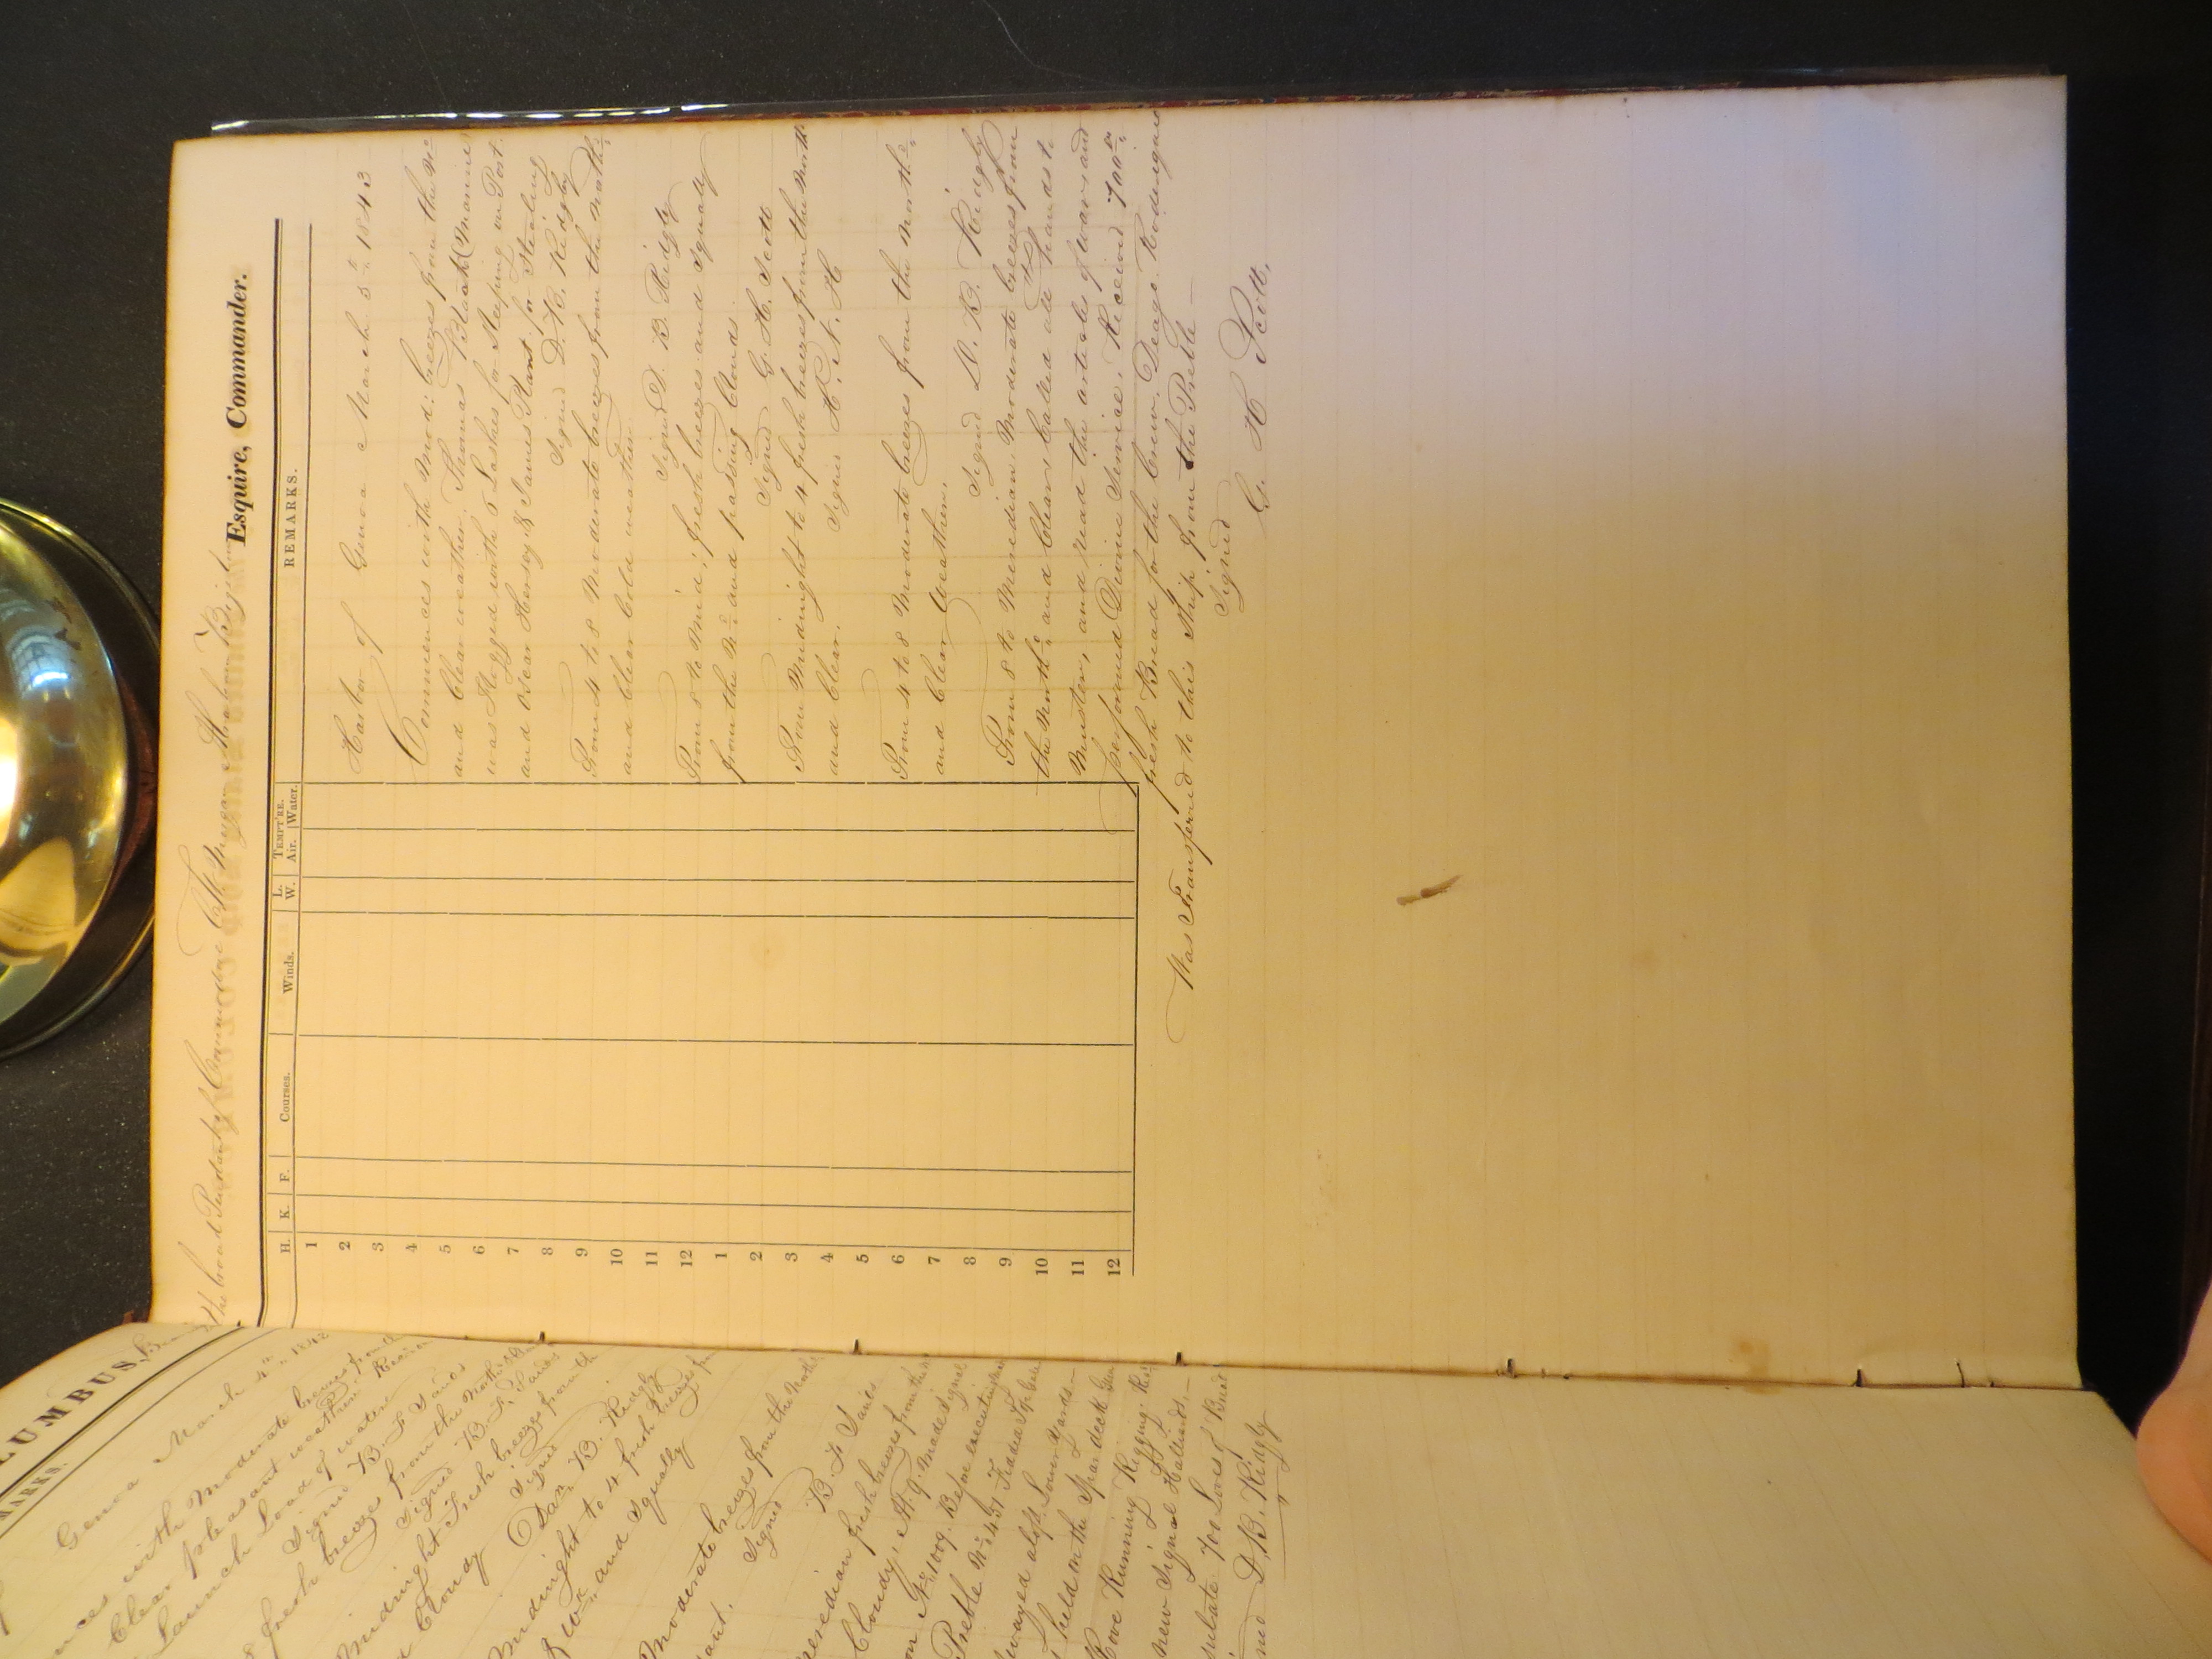 the broad Pendant of Commodore Ch. W. Morgan
Esquire, Commander.
H. K. F. Courses. Winds. L. W. TEMPT'RE. Air. Water. REMARKS.
1
2
3
4
5
6
7
8
9
10
11
12
1
2
3
4
5
6
7
8
9
10
11
12
Harbor of Genoa March 5th 1843
Commences with Mod: breezes from the Nd
and Clear weather. Thomas (Marine)
was Flogged with 6 Lashes for Sleeping on Post.
and Oscar Hersey & James Plant for Stealing
Signed D. B. Ridgly
From 4 to 8 Moderate breezes from the Northd
and Clear Cold weather.
Signed D. B. Ridgly
From 8 to Mid; fresh breezes and Squally
from the Nd and passing Clouds.
Signed G. H. Scott
From Midnight to 4 fresh breezes from the North
and Clear.
Signed H. N. H
From 4 to 8 Moderate breezes from the Northd
and Clear Weather.
Signed D. B. Ridgly
From 8 to Meredian, Moderate breezes from
the Northd and Clear, Called all hands to
Muster, and read the articles of war and
performed Divine Service. Received 700
fresh Bread for the Crew. Deago Rodrigues
Was Transferred to this Ship from the Preble—
Signed
G. H Scott.
LUMBUS,
MARKS.
Genoa March 4th 1843
nces with Moderate breezes from the
Clear pleasant weather
Launch Load of water
Signed B. F. Sands
fresh breezes from the North
Signed B. F. Sands
Midnight Fresh breezes from the
Cloudy Signed
Dan B. Ridgly
Midnight to 4 fresh breezes from
and Squally
Moderate breezes from the North
Signed
B. F. Sands
eredian fresh breezes from the
Cloudy; At 9. made Signal
No 1009. Before executing
Preble No 451
swayed aloft Lower Yards—
held on the Spar deck
Rove Running Rigging.
new Signal Halliards—
sulate 700 Loaves Bread
D. B. Ridgly